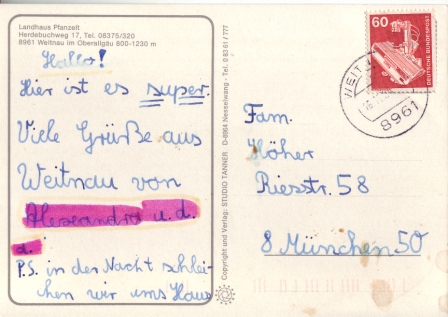 Landhaus Pfanzelt
Herdebuchweg 17, Tel. 08375/320
8961 Weitnau im Oberallgäu 800-1230 m
Hallo!
Hier ist es super.
Viele Grüße aus
Weitnau von
Alexandra u. d.
a.!
P.S. in der Nacht schlei-
chen wir ums Haus
Copyright und Verlag: STUDIO TANNER D-8964 Nesselwang - Tel. 0 83 61 / 777
60
DEUTSCHE BUNDESPOST
8961
Fam.
Höher
Riesstr. 58
8 München 50